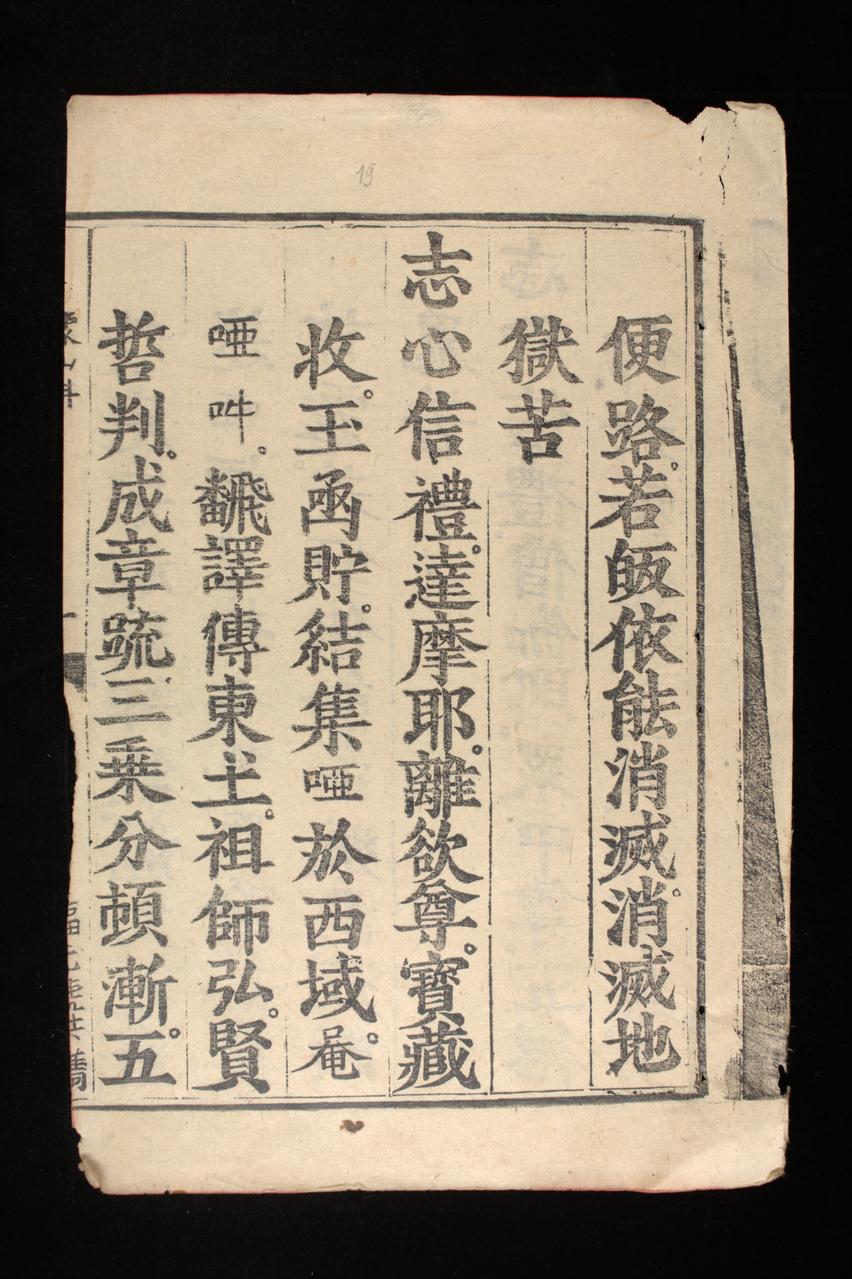 便路。若皈依能消滅。消滅地
獄苦
志心信禮。達摩耶。離欲尊。寶藏
收。玉函貯。結集啞於西域𠹌。
啞吽。翻譯傳東土。祖師弘。賢
哲判。成章䟽三乗分頓漸。五
19